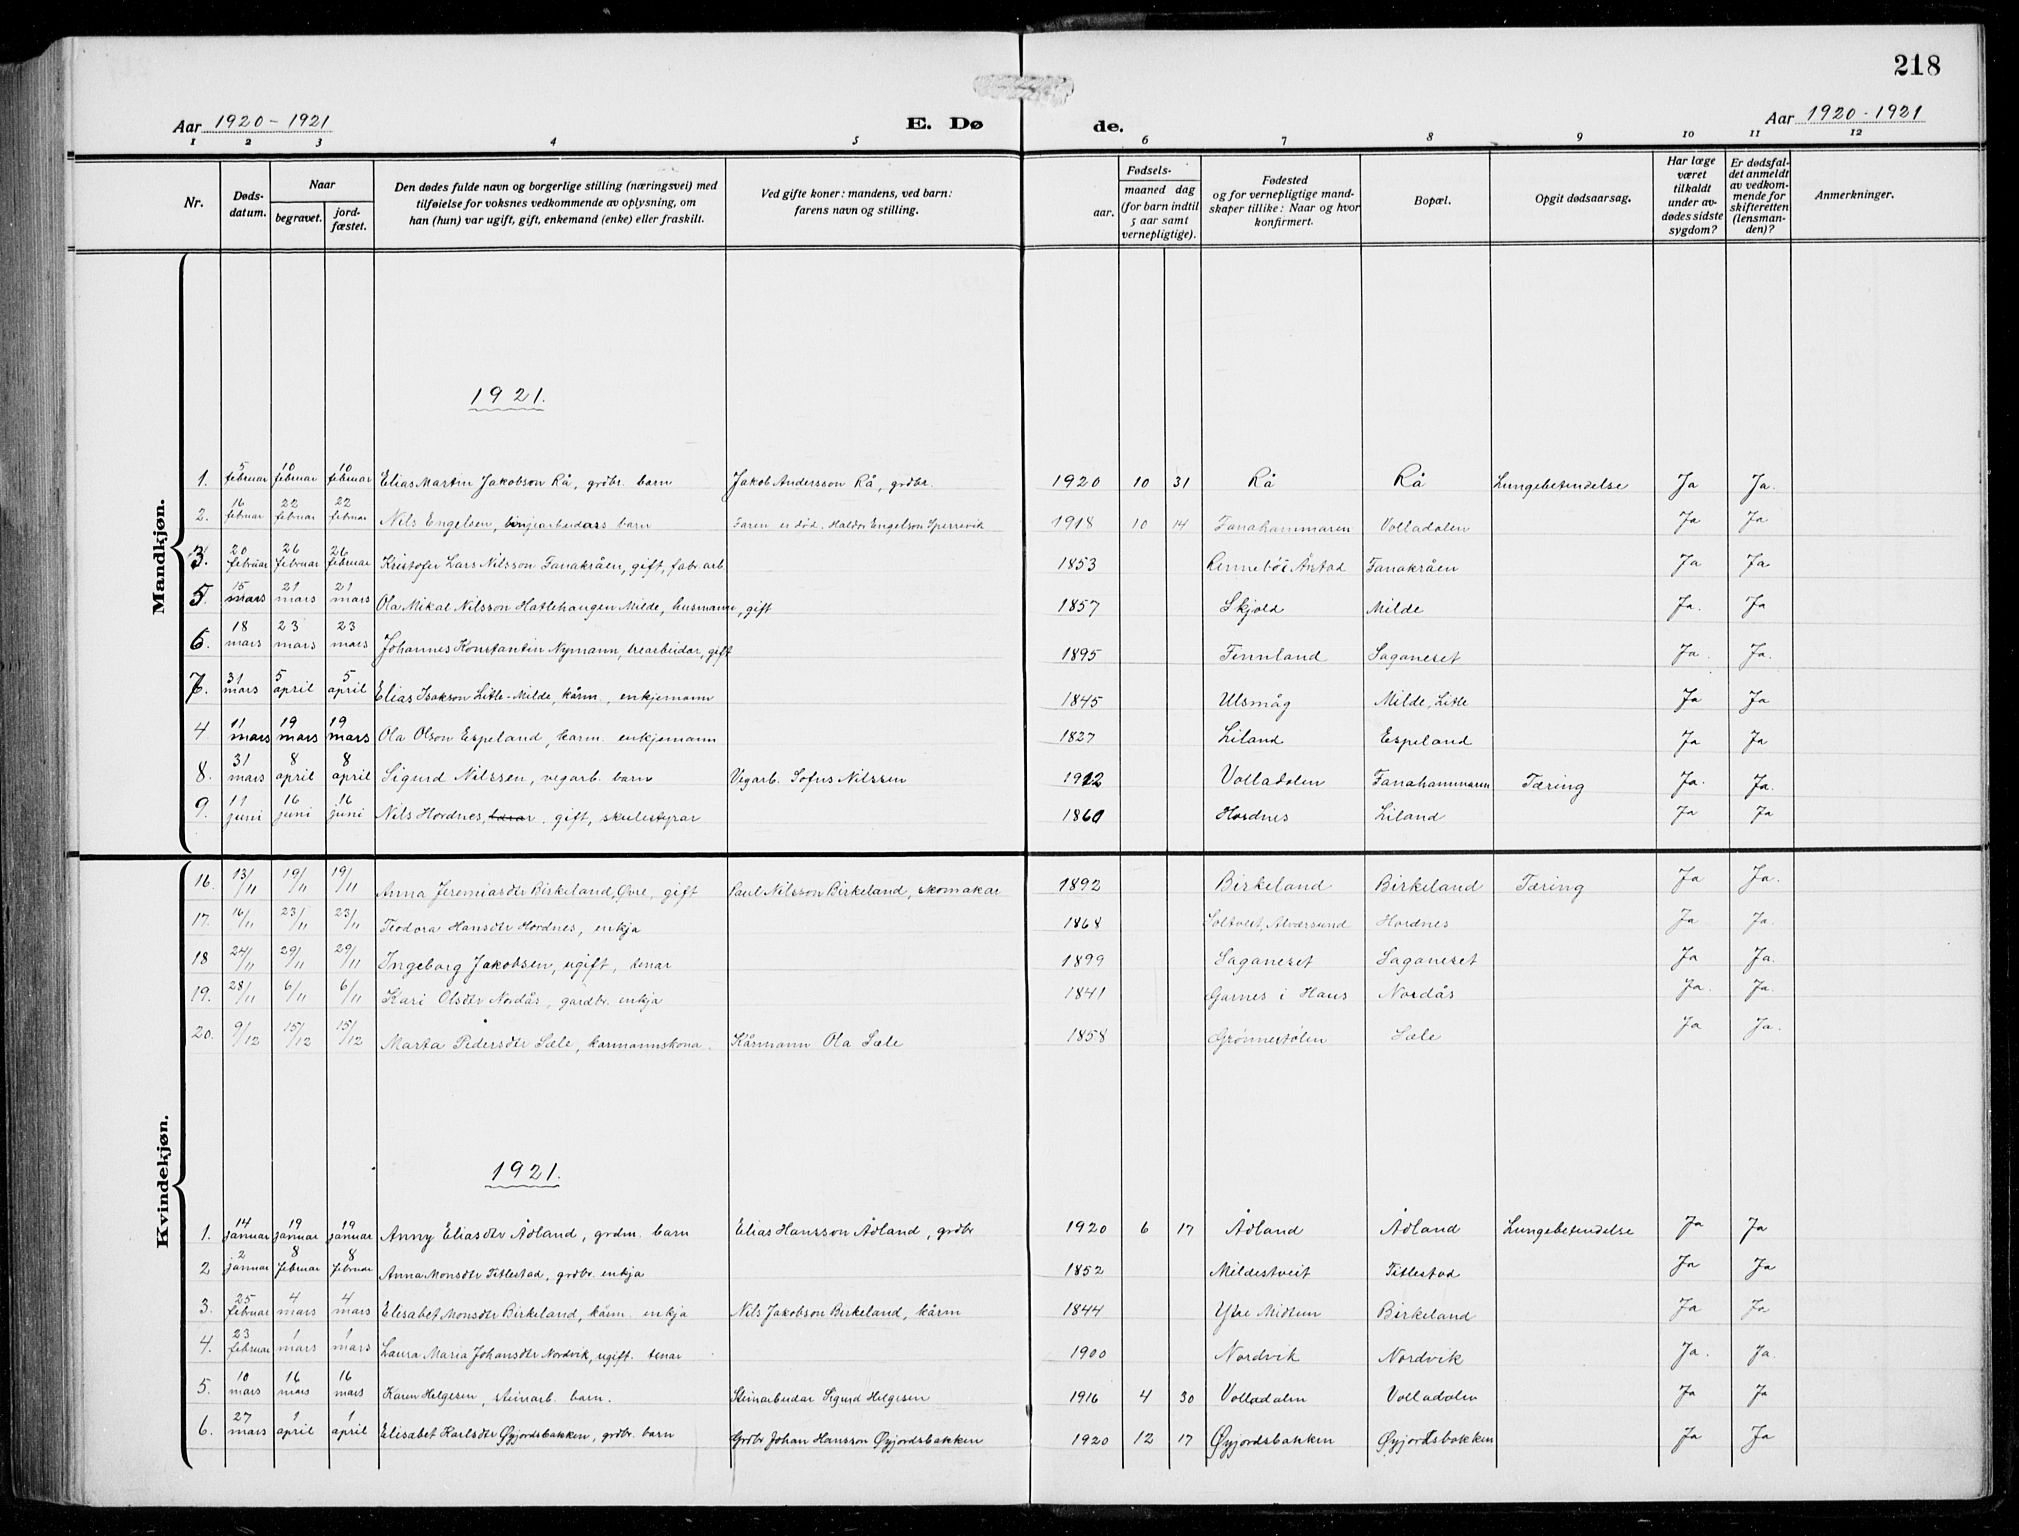 218
Aar 1920-1921 E. Dø de. Aar 1920-1921
1 2 3 4 5 6 7 8 9 10 11 12
Nr. Døds-datum. Naar begravet. jord-fæstet. Den dødes fulde navn og borgerlige stilling (næringsvei) med tilføielse for voksnes vedkommende av oplysning, om han (hun) var ugift, gift, enkemand (enke) eller fraskilt. Ved gifte koner: mandens, ved barn: farens navn og stilling. Fødsels- aar. maaned dag (for barn indtil 5 aar samt vernepligtige). Fødested og for vernepligtige mand-skaper tillike: Naar og hvor konfirmert. Bopæl. Opgit dødsaarsag. Har læge været tilkaldt under av-dødes sidste sygdom? Er dødsfal-det anmeldt av vedkom-mende for skifteretten (lensman-den)? Anmerkninger.
Mandkjøn.
1921.
1. 5 februar 10 februar 10 februar Elias Martin Jakobson Rå, grdbr. barn Jakob Andersson Rå, grdbr. 1920 10 31 Rå Rå Lungebetendelse Ja Ja.
2. 16 februar 22 februar 22 februar Nils Engelsen, linjearbeidars barn Faren er død. Haldor Engelson Sperrevik 1918 10 14 Fanahammaren Volladalen Ja Ja
3. 20 februar 26 februar 26 februar Kristofer Lars Nilsson Fanakråen, gift, fabr. arb 1853 Årstad Fanakråen Ja Ja
5. 15 mars 21 mars 21 mars Ola Mikal Nilsson Hatlehaugen Milde, husmann, gift 1857 Skjold Milde Ja. Ja
6. 18 mars 23 mars 23 mars Johannes Konstantin Nymann, trearbeidar, gift 1895 Finnland Saganeset Ja. Ja.
7. 31 mars 5 april 5 april Elias Isakson Litle-Milde, kårm., enkjemann 1845 Ulsmåg Milde, Litle Ja Ja
4 11 mars 19 mars 19 mars Ola Olson Espeland, karm. enkjemann 1827 Liland Espeland Ja Ja
8. 31 mars 8 april 8 april Sigurd Nilssen, vegarb. barn Vegarb. Sofus Nilssen 1912 Volladalen Fanahammaren Tæring Ja. Ja.
9. 11 juni 16 juni 16 juni Nils Hordnes, gift, skulestyrar 1860 Hordnes Liland Ja Ja
Kvindekjøn.
16. 13/11 19/11 19/11 Anna Jeremiasdtr Birkeland, Øvre, gift Paul Nilsson Birkeland, skomakar 1892 Birkeland Birkeland Tæring Ja Ja.
17. 16/11 23/11 23/11 Teodora Hansdtr Hordnes, enkja 1868 Soltveit, Alversund Hordnes Ja Ja.
18 24/11 29/11 29/11 Ingeborg Jakobsen, ugift, tenar 1899 Saganeset Saganeset Ja Ja.
19. 28/11 6/11 6/11 Kari Olsdtr Nordås, gardbr. enkja 1841 Garnes i Haus Nordås Ja. Ja.
20. 9/12 15/12 15/12 Marta Pedersdtr Sæle, karmannskona. Kårmann Ola Sæle 1858 Grønnestølen Sæle Ja Ja.
1921.
1. 14 januar 19 januar 19 januar Anny Eliasdtr Ådland, grdm. barn Elias Hansson Ådland, grdbr 1920 6 17 Ådland Ådland Lungebetendelse Ja Ja
2 2 januar 8 februar 8 februar Anna Monsdtr Titlestad, grdbr. enkja 1852 Mildestveit Titlestad Ja Ja
3. 25 februar 4 mars 4 mars Elisabet Monsdtr Birkeland, kårm. enkja Nils Jakobson Birkeland, kårm 1844 Ytre Midtun Birkeland Ja Ja
4. 23 februar 1 mars 1 mars Laura Maria Johansdtr Nordvik, ugift. tenar 1900 Nordvik Nordvik Ja. Ja.
5. 10 mars 16 mars 16 mars Karen Helgesen, steinarb. barn. Steinarbeidar Sigurd Helgesen 1916 4 30 Volladalen Volladalen Ja Ja
6. 27 mars 1 april 1 april Elisabet Karlsdtr Øyjordsbakken, grdbr. barn Grdbr Johan Hansson Øyjordsbakken 1920 12 17 Øyjordsbakken Øyjordsbakken Ja Ja